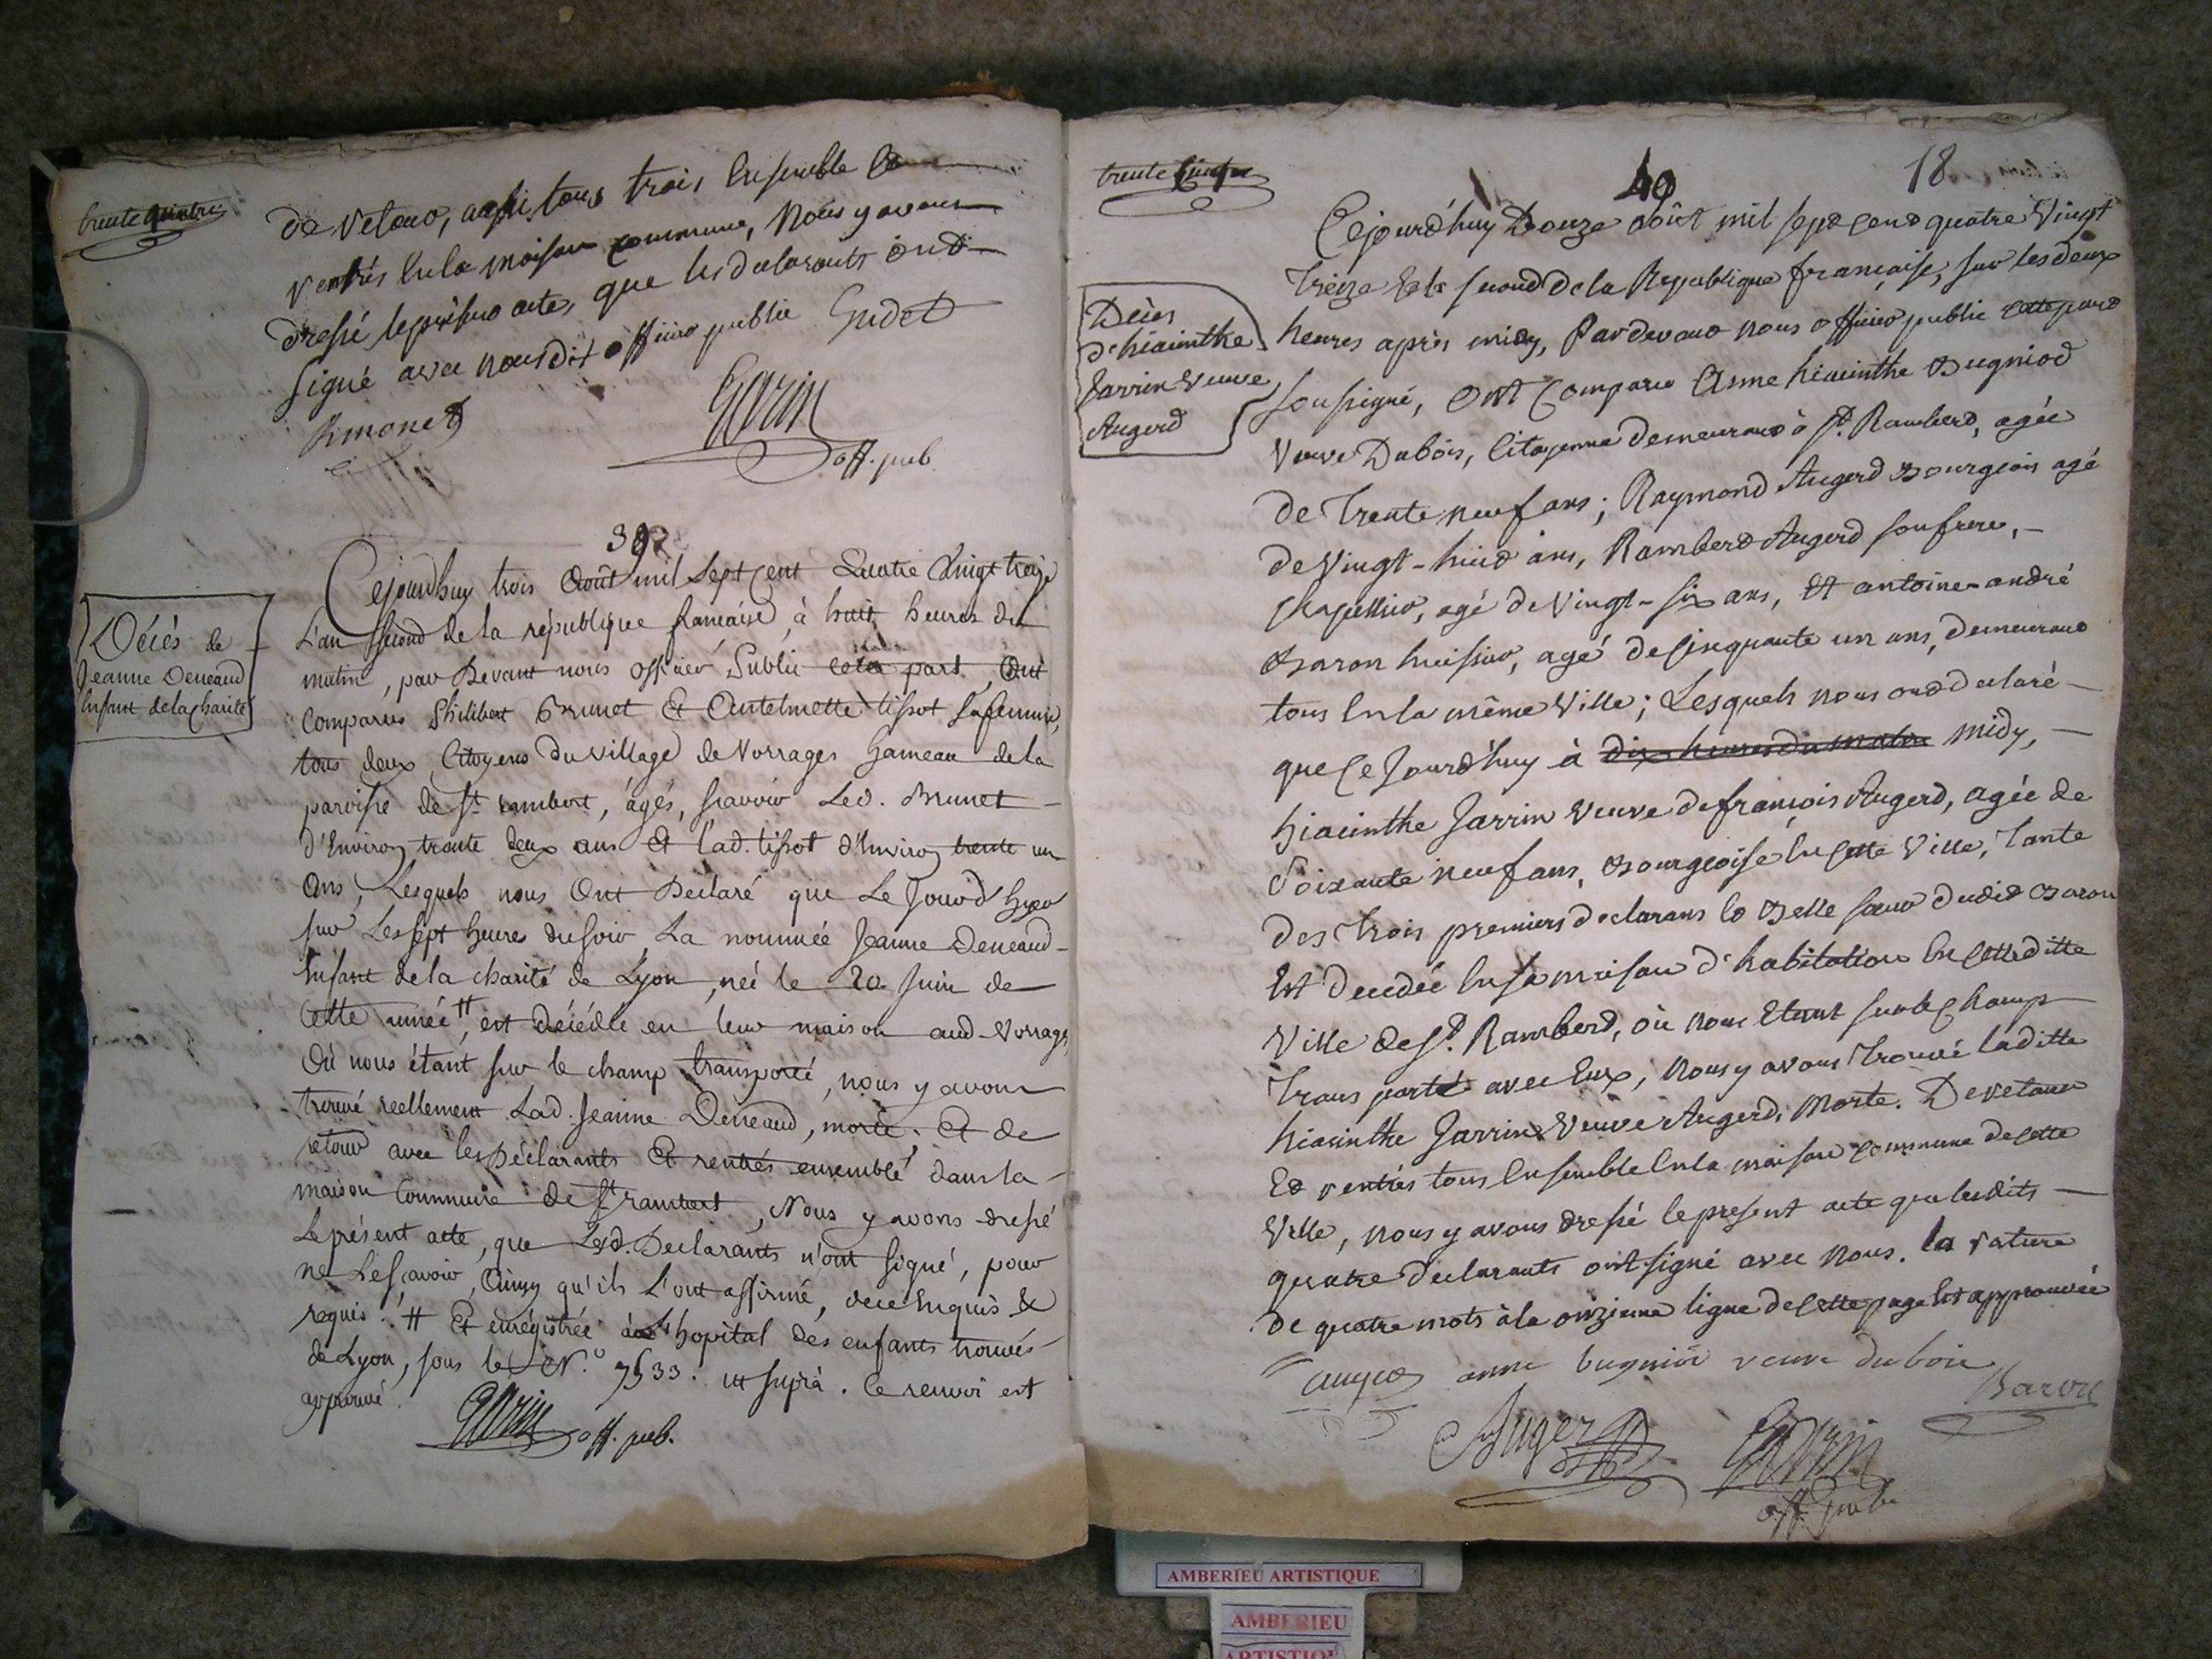 trente quatre
de retour, aussi tous trois ensemble et
rentrés en la maison commune, nous y avons
dressé le présent acte, que les déclarants ont
signé avec nousdit officier public Guidet
Simonet
Garin
off. pub.
39
Décès de
Jeanne Deneaud
Enfant de la charité
Cejourdhuy trois Août mil Sept Cent Quatre Vingt treize
L'an second de la république francaise, à huit heures du
matin, par Devant nous officier Public cette part, Ont
Comparus Philibert Brunet Et Antelmette tissot sa femme,
tous deux Citoyens du village de Vorrages hameau de la
paroisse de St. rambert, âgés, sçavoir Led. Brunet
d'Environ trente deux ans et lad. tissot d'Environ trente un
Ans, Lesquels nous Ont Declaré que Le Jourd'hyer
sur Les sept heures du soir La nommée Jeanne Deneaud
Enfant de la charité de Lyon, née le 20 Juin de
Cette année #, est décédée en leur maison aud. Vorrages
Où nous étant sur le champ transporté, nous y avons
trouvé reellement Lad. Jeanne Deneaud, morte. Et de
retour avec les Déclarants Et rentrés ensemble dans la
maison Commune de St. rambert, Nous y avons dressé
Le présent acte, que Lesd. Declarants n'ont signé, pour
ne Le sçavoir, Ainsy qu'ils L'ont affirmé, de ce Enquis &
requis. # Et enrégistrée à L'hopital des enfants trouvés
de Lyon, sous le N.° 7533. ut suprà. Ce renvoi est
approuvé.
Garin off. pub.
trente cinq
40
18
Décès
d'hiacinthe
Jarrin Veuve
Augerd
Cejourd'huy Douze août mil sept cent quatre Vingt
Treize Et le second de la Republique française, sur les deux
heures après midy, Pardevant nous officier public cette part
soussigné, Ont Comparu Anne hiacinthe Bugniod
Veuve Dubois, Citoyenne demeurant à St. Ramberd, agée
de Trente neuf ans; Raymond Augerd Bourgeois agé
de Vingt-huit ans, Ramberd Augerd son frere,
Chapellier, agé de Vingt-six ans, Et antoine andré
Baron huissier, agé de Cinquante un ans, demeurant
tous En la même Ville; Lesquels nous ont declaré
que Ce Jourd'huy à dix heures du matin midy,
hiacinthe Jarrin Veuve de françois Augerd, agée de
Soixante neuf ans, Bourgeoise En Cette Ville, Tante
des Trois premiers declarans Et Belle sœur dudit Baron
Est decedée En sa maison d'habitation En Cetteditte
Ville de St. Ramberd, où nous Etant sur le Champ
Transporté avec Eux, nous y avons Trouvé laditte
hiacinthe Jarrin Veuve Augerd, Morte. De retour
Et rentrés tous Ensemble En la maison Commune de Cette
Ville, nous y avons dressé le present acte que lesdits
quatre declarants ont signé avec nous. la rature
de quatre mots à la onzieme ligne de Cette page Est approuvée
Augerd anne bugniod veuve dubois
Baron
Augerd
Garin
off. pub.
AMBERIEU ARTISTIQUE
AMBERIEU
ARTISTIQUE